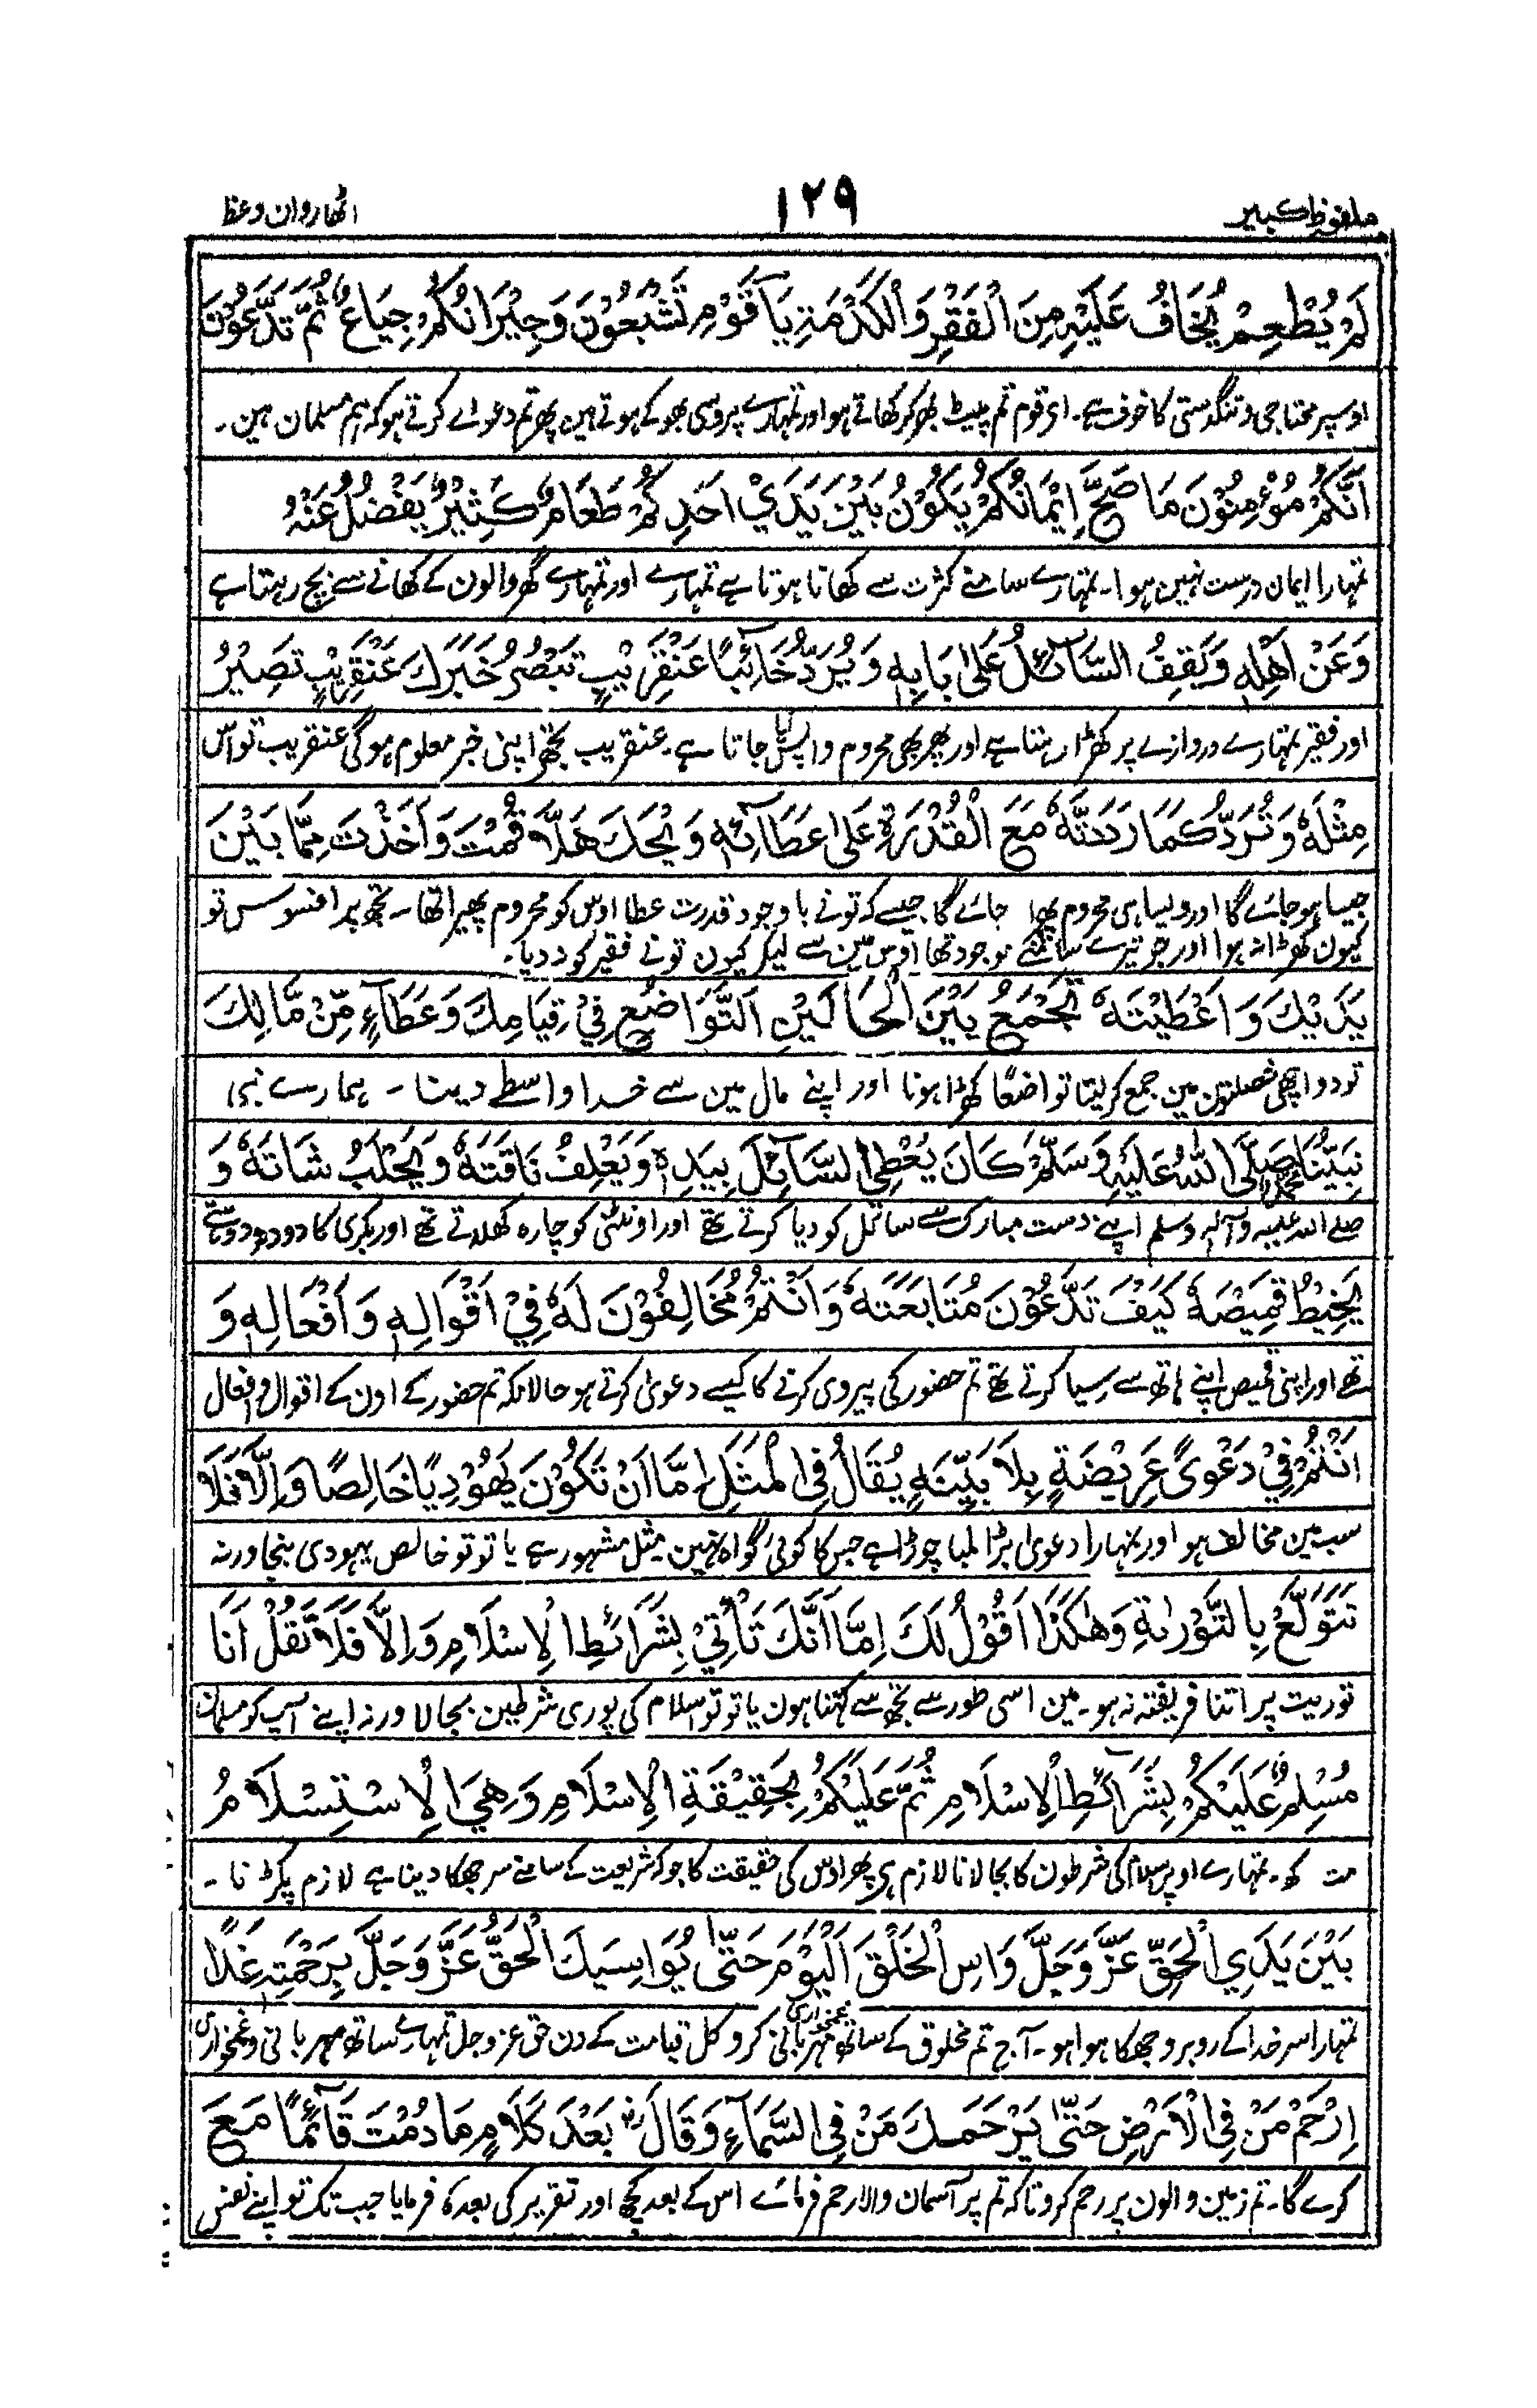 ملفوظ کبیر
۱۲۹
اٹھاروان وعظ
لَمْ يُطْعِمْ يُخَافُ عَلَيْهِ مِنَ الْفَقْرِ وَالْكَدْمَةِ يَآ قَوْمِ تَشْبَعُوْنَ وَجِيْرَانُكُمْ جِيَاعٌ ثُمَّ تَدَّعُوْنَ
اوسپر محتاجی و تنگدستی کا خوف ہے۔ ای قوم تم پیٹ بھر کر کھاتے ہو اور تمہارے پروسی بھوکے ہوتے ہین پھر تم دعوے کرتے ہو کہ ہم مسلمان ہین۔
اَنَّكُمْ مُؤْمِنُوْنَ مَا صَحَّ اِيْمَانُكُمْ يَكُوْنُ بَيْنَ يَدَيْ اَحَدِكُمْ طَعَامٌ كَثِيْرٌ يَفْضُلُ عَنْهُ
تمہارا ایمان درست نہین ہوا۔ تمہارے سامنے کثرت سے کھانا ہوتا ہے تمہارے اور تمہارے گھر والون کے کھانے سے بچ رہتا ہے
وَعَنْ اَهْلِهٖ وَيَقِفُ السَّآئِلُ عَلٰى بَابِهٖ وَيُرَدُّ خَآئِبًا عَنْقَرِيْبٍ تَبْصُرُ خَبَرَكَ عَنْقَرِيْبٍ تَصِيْرُ
اور فقیر تمہارے دروازے پر کھڑا رہتا ہے اور پھر بھی محروم واپس کیا جاتا ہے۔ عنقریب تجھے اپنی خبر معلوم ہوگی عنقریب تو اس
مِثْلَهٗ وَتُرَدُّ كَمَا رَدَدْتَّهٗ مَعَ الْقُدْرَةِ عَلٰى عَطَآئِهٖ وَيْحَكَ هَلَّا قُمْتَ وَاَخَذْتَ مِمَّا بَيْنَ
جیسا ہو جائے گا اور ویسا ہی محروم پھرا جائے گا جیسے کہ تونے باوجود قدرت عطا اوس کو محروم پھیرا تھا۔ تجھ پر افسوس تو
کیون کھڑا نہ ہوا اور جو تیرے سامنے موجود تھا اوس مین سے لیکر کیون تو نے فقیر کو نہ دیا۔
يَدَيْكَ وَاَعْطَيْتَهٗ تَجْمَعُ بَيْنَ الْحَالَيْنِ اَلتَّوَاضُعِ فِيْ قِيَامِكَ وَعَطَآءٍ مِّنْ مَّالِكَ
تو دو اچھی خصلتون مین جمع کر لیتا تواضعًا کھڑا ہونا اور اپنے مال مین سے خدا واسطے دینا۔ ہمارے نبی
نَبِيُّنَا مُحَمَّدٌ صَلَّى اللّٰهُ عَلَيْهِ وَسَلَّمَ كَانَ يُعْطِي السَّآئِلَ بِيَدِهٖ وَيَعْلِفُ نَاقَتَهٗ وَيَحْلَبُ شَاتَهٗ وَ
صلے اللہ علیہ وآلہ وسلم اپنے دست مبارک سے سائل کو دیا کرتے تھے اور اونٹنی کو چارہ کھلاتے تھے اور بکری کا دودھ دوہتے
يَخِيْطُ قَمِيْصَهٗ كَيْفَ تَدَّعُوْنَ مُتَابَعَتَهٗ وَاَنْتُمْ مُخَالِفُوْنَ لَهٗ فِيْ اَقْوَالِهٖ وَاَفْعَالِهٖ وَ
تھے اور اپنی قمیص اپنے ہاتھ سے سیا کرتے تھے تم حضور کی پیروی کرنے کا کیسے دعوی کرتے ہو حالانکہ تم حضور کے اون کے اقوال و افعال
اَنْتُمْ فِيْ دَعْوًى عَرِيْضَةٍ بِلَا بَيِّنَةٍ يُقَالُ فِي الْمَثَلِ اِمَّا اَنْ تَكُوْنَ يَهُوْدِيًا خَالِصًا وَاِلَّا فَلَا
سب مین مخالف ہو اور تمہارا دعوی بڑا لمبا چوڑا ہے جس کا کوئی گواہ نہین۔ مثل مشہور ہے یا تو تو خالص یہودی بنجا ورنہ
تَتَوَلَّعْ بِالتَّوْرَاةِ وَهٰكَذَا اَقُوْلُ لَكَ اِمَّا اَنَّكَ تَأْتِيْ بِشَرَائِطِ الْاِسْلَامِ وَاِلَّا فَلَا تَقُلْ اَنَا
توریت پر اتنا فریفتہ نہ ہو۔ مین اسی طور سے تجھ سے کہتا ہون یا تو تو اسلام کی پوری شرطین بجا لا ورنہ اپنے آپ کو مسلمان
مُسْلِمٌ عَلَيْكُمْ بِشَرَآئِطِ الْاِسْلَامِ ثُمَّ عَلَيْكُمْ بِحَقِيْقَةِ الْاِسْلَامِ وَهِيَ الْاِسْتِسْلَامُ
مت کھ۔ تمہارے اوپر اسلام کی شرطون کا بجا لانا لازم ہی پھر اوس کی حقیقت کا جو کہ شریعت کے سامنے سر جھکا دینا ہے لازم پکڑنا۔
بَيْنَ يَدَيِ الْحَقِّ عَزَّ وَجَلَّ وَاسِ الْخَلْقَ اَلْيَوْمَ حَتّٰى يُوَاسِيَكَ الْحَقُّ عَزَّ وَجَلَّ بِرَحْمَتِهٖ غَدًا
تمہارا سر خدا کے روبرو جھکا ہوا ہو۔ آج تم مخلوق کے ساتھ غمخواری مہربانی کرو کل قیامت کے دن حق عز و جل تمہارے ساتھ مہربانی و غمخواری
اِرْحَمْ مَنْ فِي الْاَرْضِ حَتّٰى يَرْحَمَكَ مَنْ فِي السَّمَآءِ وَقَالَ بَعْدَ كَلَامٍ مَا دُمْتَ قَآئِمًا مَعَ
کرے گا۔ تم زمین والون پر رحم کرو تاکہ تم پر آسمان والا رحم فرمائے اس کے بعد کچھ اور تقریر کی بعدہ فرمایا جب تک تو اپنے نفس